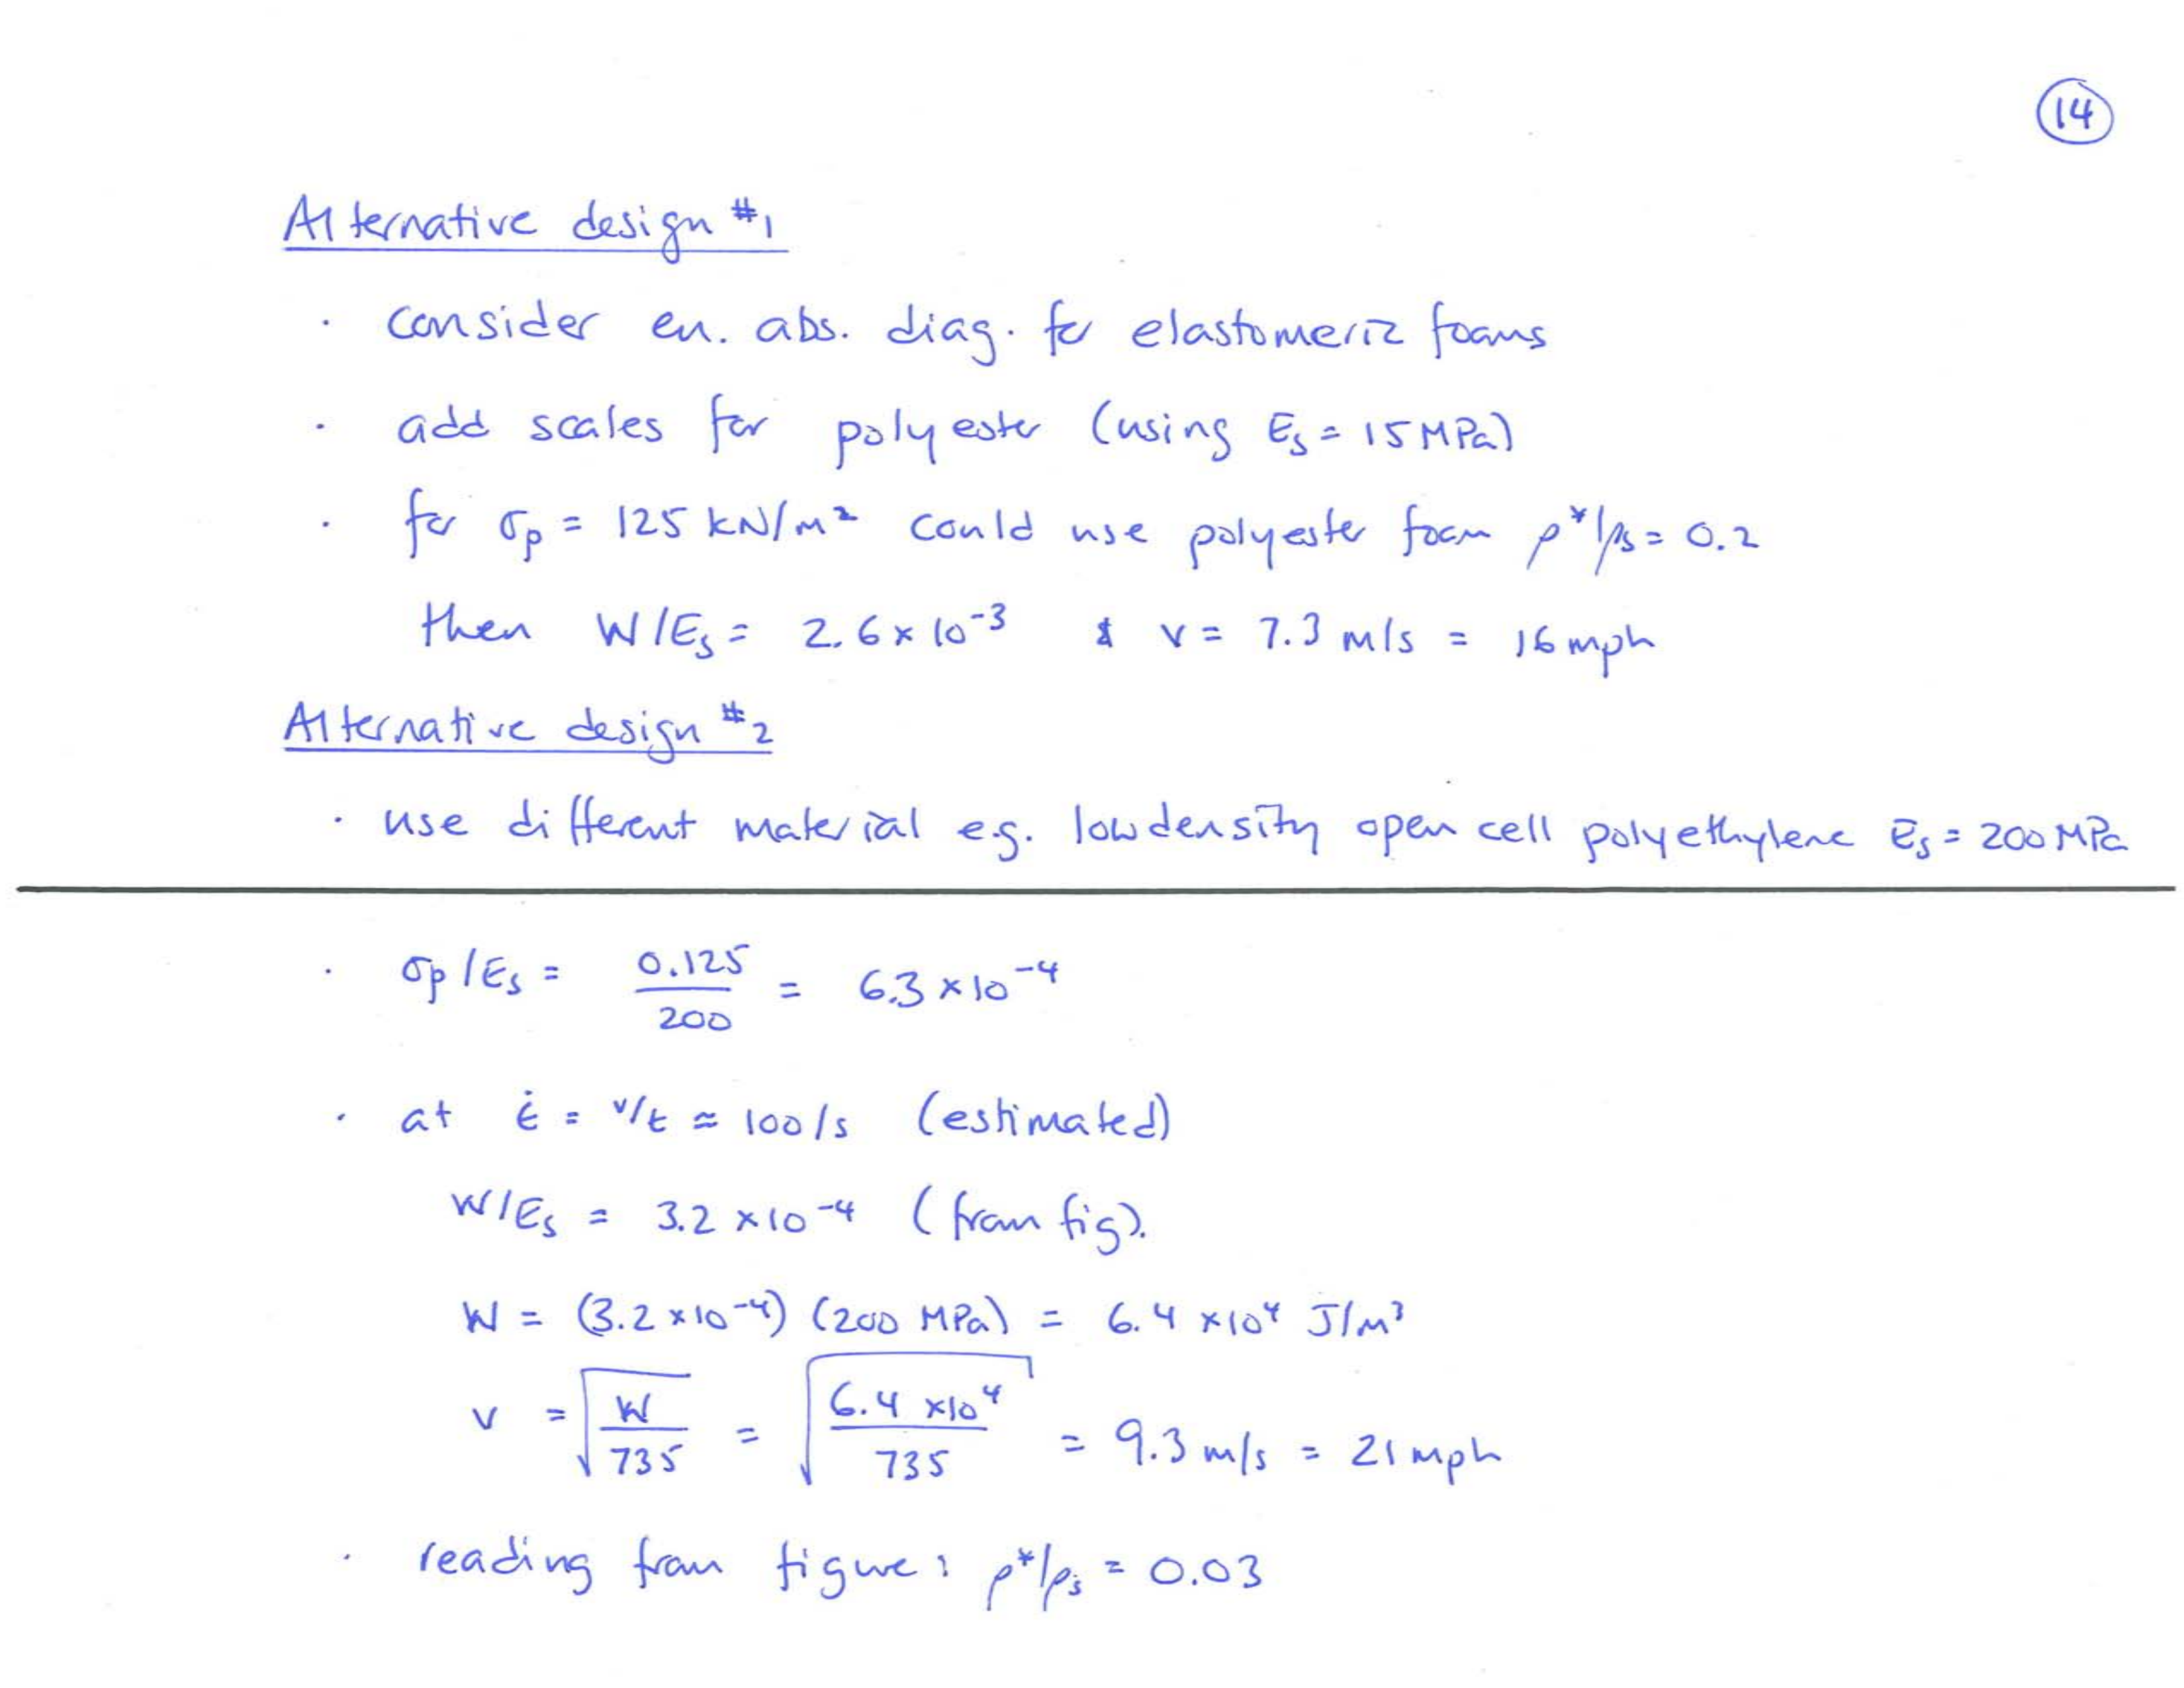 14
Alternative design #1
· consider en. abs. diag. for elastomeric foams
· add scales for polyester (using Es = 15 MPa)
· for σp = 125 kN/m² could use polyester foam ρ*/ρs = 0.2
then W/Es = 2.6 × 10⁻³ & v = 7.3 m/s = 16 mph
Alternative design #2
· use different material e.g. low density open cell polyethylene Es = 200 MPa
· σp/Es = 0.125/200 = 6.3 × 10⁻⁴
· at ε̇ = v/t ≈ 100/s (estimated)
W/Es = 3.2 × 10⁻⁴ (from fig).
W = (3.2 × 10⁻⁴) (200 MPa) = 6.4 × 10⁴ J/m³
v = √(W/735) = √(6.4 × 10⁴/735) = 9.3 m/s = 21 mph
· reading from figure: ρ*/ρs = 0.03